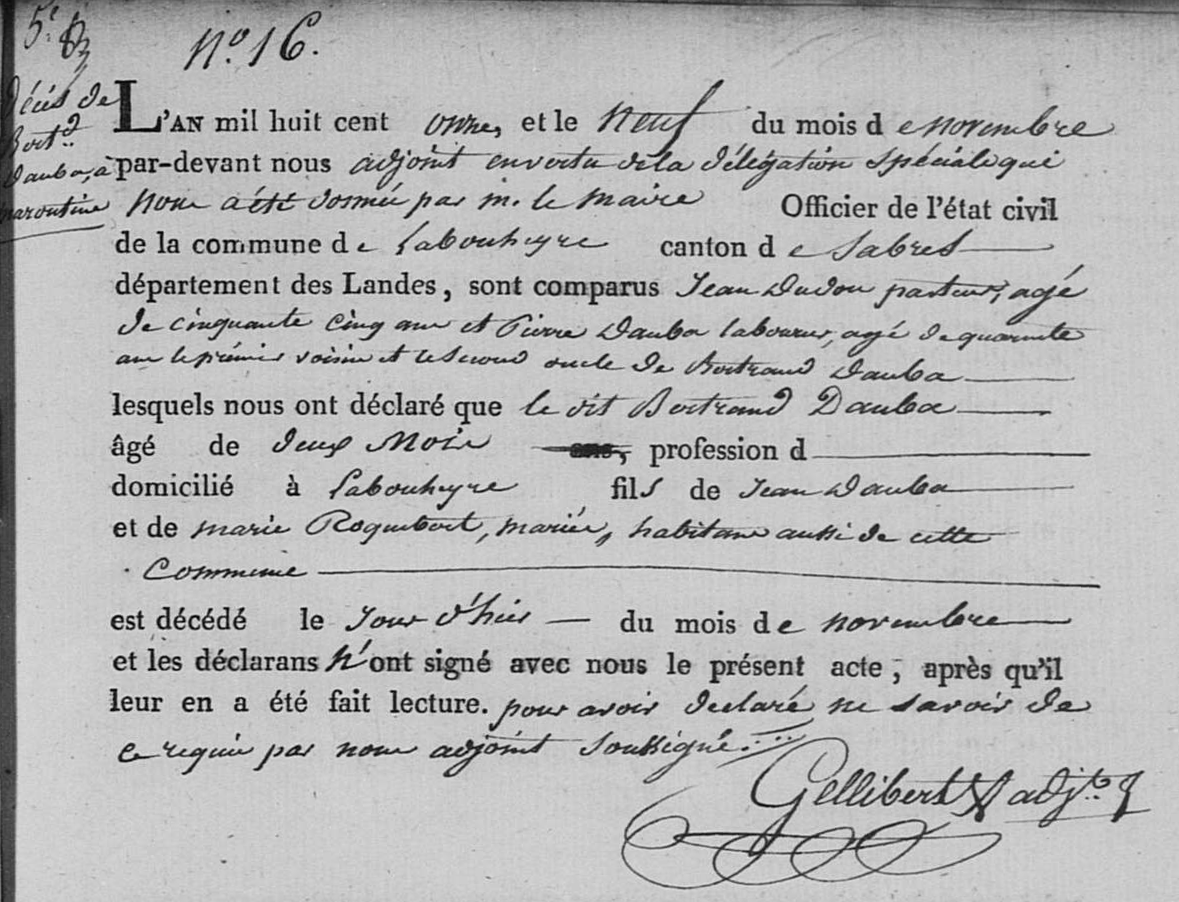 5.e
n.o 16.
Décès de
Bert.d
Dauba, à
marontine
L'AN mil huit cent onze, et le neuf du mois d e novembre
par-devant nous adjoint en vertu de la délégation spéciale qui
nous a été donnée par m. le maire Officier de l'état civil
de la commune d e Labouheyre canton d e Sabres
département des Landes, sont comparus Jean Dudon pasteur, agé
de cinquante cinq ans et Pierre Dauba laboureur, agé de quarante
ans le premier voisin et le second oncle de Bertrand Dauba
lesquels nous ont déclaré que le dit Bertrand Dauba
âgé de deux mois ans, profession d
domicilié à Labouheyre fils de Jean Dauba
et de marie Roquebert, mariés, habitans aussi de cette
Commune
est décédé le jour d'hier du mois de novembre
et les déclarans n'ont signé avec nous le présent acte, après qu'il
leur en a été fait lecture. pour avoir déclaré ne savoir de
ce requis par nous adjoint soussigné.
Gellibert adj.t